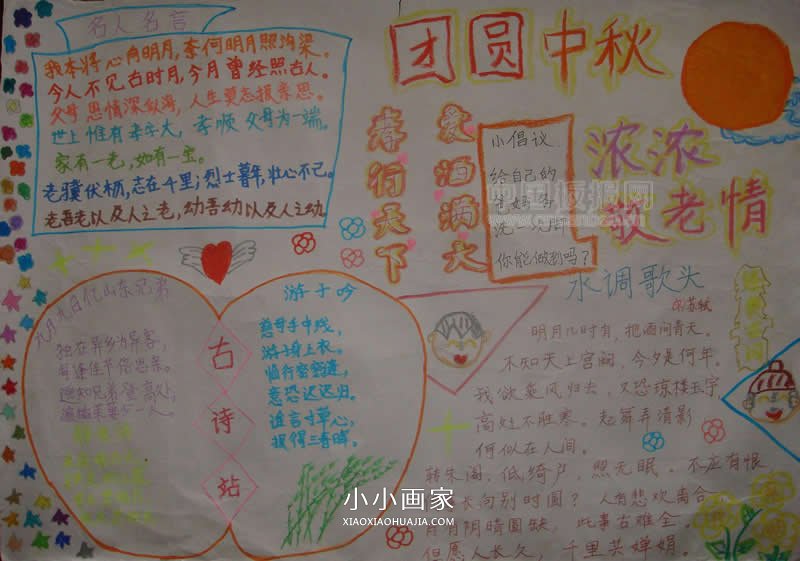 名人名言
我本将心向明月,奈何明月照沟渠。
今人不见古时月,今月曾经照古人。
父母恩情深似海,人生莫忘报亲恩。
世上惟有孝字大,孝顺父母为一端。
家有一老,如有一宝。
老骥伏枥,志在千里;烈士暮年,壮心不已。
老吾老以及人之老,幼吾幼以及人之幼
团圆中秋
孝行天下
爱洒满
小倡议
给自己的
爸妈
洗一次脚
你能做到吗?
浓浓
敬老情
九月九日忆山东兄弟
独在异乡为异客,
每逢佳节倍思亲。
遥知兄弟登高处,
遍插茱萸少一人。
古诗站
游子吟
慈母手中线,
游子身上衣。
临行密密缝,
意恐迟迟归。
谁言寸草心,
报得三春晖。
水调歌头
苏轼
明月几时有,把酒问青天。
不知天上宫阙,今夕是何年。
我欲乘风归去,又恐琼楼玉宇
高处不胜寒。起舞弄清影
何似在人间。
转朱阁,低绮户,照无眠。不应有恨
长向别时圆?人有悲欢离合
月有阴晴圆缺,此事古难全。
但愿人长久,千里共婵娟。
小小画家
XIAOXIAOHUAJIA.COM